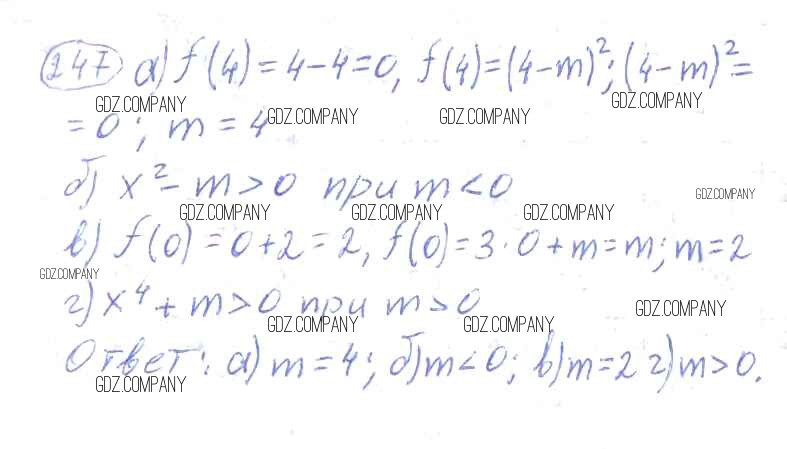 247 а) f(4) = 4 - 4 = 0, f(4) = (4 - m)²; (4 - m)² =
GDZ.COMPANY GDZ.COMPANY GDZ.COMPANY GDZ.COMPANY
= 0; m = 4
б) x² - m > 0 при m < 0
GDZ.COMPANY GDZ.COMPANY GDZ.COMPANY GDZ.COMPANY
в) f(0) = 0 + 2 = 2, f(0) = 3 · 0 + m = m; m = 2
GDZ.COMPANY
г) x⁴ + m > 0 при m > 0
GDZ.COMPANY GDZ.COMPANY GDZ.COMPANY
Ответ: а) m = 4; б) m < 0; в) m = 2 г) m > 0.
GDZ.COMPANY